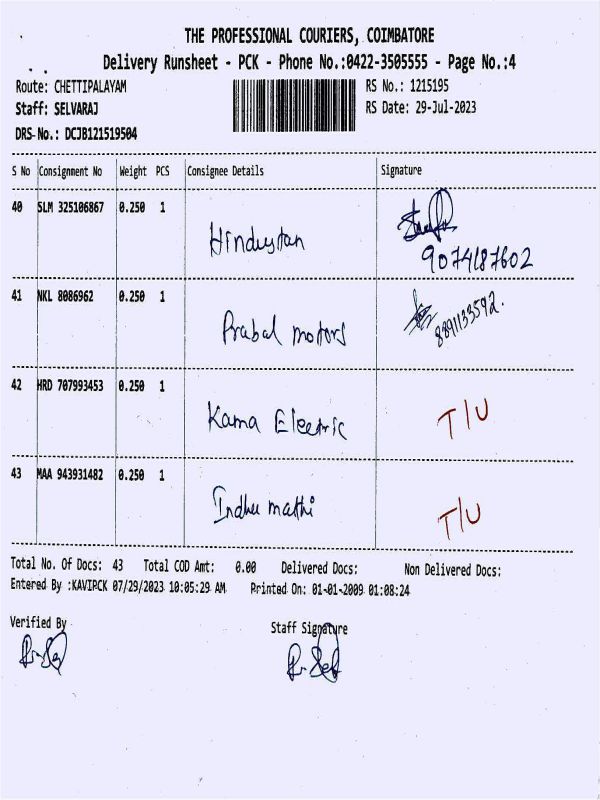 THE PROFESSIONAL COURIERS, COIMBATORE
Delivery Runsheet - PCK - Phone No.:0422-3505555 - Page No.:4
Route: CHETTIPALAYAM RS No.: 1215195
Staff: SELVARAJ RS Date: 29-Jul-2023
DRS-No.: DCJB121519504
S No Consignment No Weight PCS Consignee Details Signature
40 SLM 325106867 0.250 1
Hindustan
9074187602
41 NKL 8086962 0.250 1
Prabal motors 8891133592.
42 HRD 707993453 0.250 1
Kama Electric T/U
43 MAA 943931482 0.250 1
Indhu mathi T/U
Total No. Of Docs: 43 Total COD Amt: 0.00 Delivered Docs: Non Delivered Docs:
Entered By :KAVIPCK 07/29/2023 10:05:29 AM Printed On: 01-01-2009 01:08:24
Verified By Staff Signature